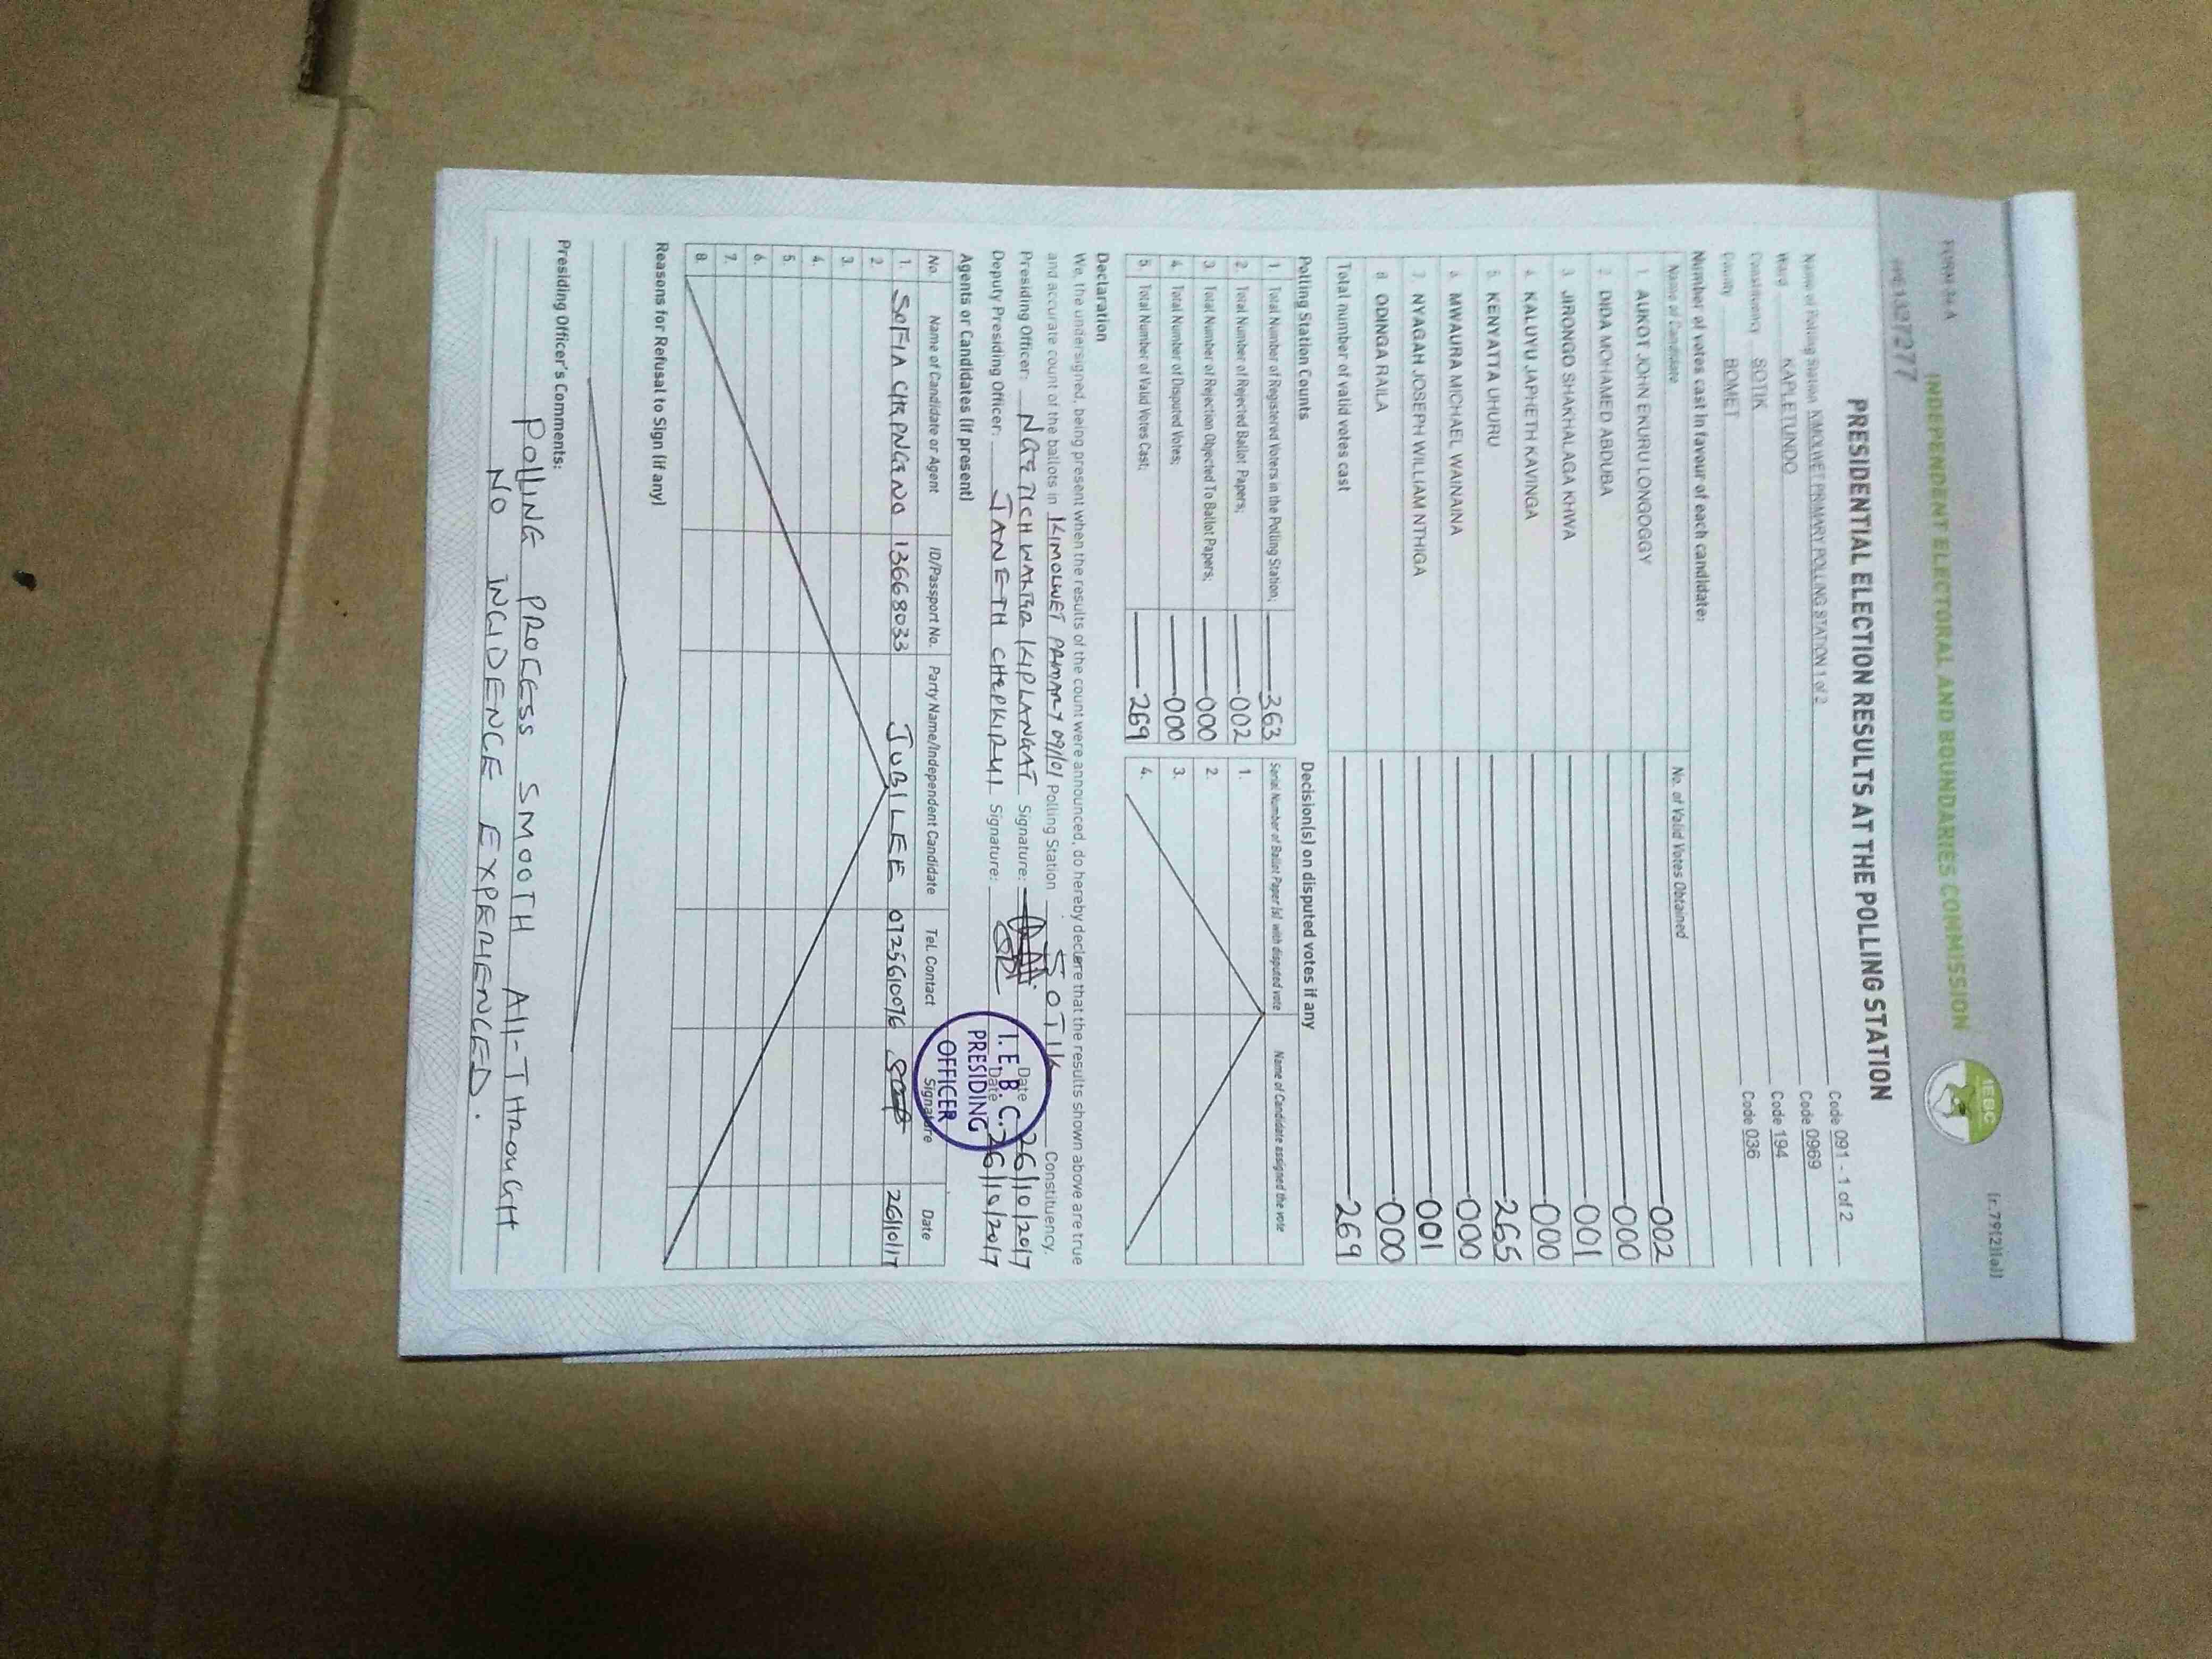 FORM 34A
(r.79(2)(a))
INDEPENDENT ELECTORAL AND BOUNDARIES COMMISSION
IEBC
PRESIDENTIAL ELECTION RESULTS AT THE POLLING STATION
Name of Polling Station KIMOLWET PRIMARY POLLING STATION 1 of 2 Code 091 - 1 of 2
Ward KAPLETUNDO Code 0969
Constituency SOTIK Code 194
County BOMET Code 036
Number of votes cast in favour of each candidate:
Name of Candidate No. of Valid Votes Obtained
1. AUKOT JOHN EKURU LONGOGGY 002
2. DIDA MOHAMED ABDUBA 000
3. JIRONGO SHAKHALAGA KHWA 001
4. KALUYU JAPHETH KAVINGA 000
5. KENYATTA UHURU 265
6. MWAURA MICHAEL WAINAINA 000
7. NYAGAH JOSEPH WILLIAM NTHIGA 001
8. ODINGA RAILA 000
Total number of valid votes cast 269
Polling Station Counts
1 Total Number of Registered Voters in the Polling Station; 363
2 Total Number of Rejected Ballot Papers; 002
3 Total Number of Rejection Objected To Ballot Papers; 000
4 Total Number of Disputed Votes; 000
5. Total Number of Valid Votes Cast; 269
Decision(s) on disputed votes if any
Serial Number of Ballot Paper(s) with disputed vote Name of Candidate assigned the vote
1.
2.
3.
4.
Declaration
We, the undersigned, being present when the results of the count were announced, do hereby declare that the results shown above are true
and accurate count of the ballots in KIMOLWET PRIMARY 091/01 Polling Station SOTIK Constituency.
Presiding Officer: NGETICH WALTER KIPLANGAT Signature: Date 26/10/2017
Deputy Presiding Officer: JANETH CHEPKIRUI Signature: Date 26/10/2017
I.E.B.C.
PRESIDING
OFFICER
Agents or Candidates (if present)
No. Name of Candidate or Agent ID/Passport No. Party Name/Independent Candidate Tel. Contact Signature Date
1. SOFIA CHEPNGENO 13668033 JUBILEE 0725610076 26/10/17
2.
3.
4.
5.
6.
7.
8.
Reasons for Refusal to Sign (if any)
Presiding Officer's Comments:
POLLING PROCESS SMOOTH All-THROUGH
NO INCIDENCE EXPERIENCED.